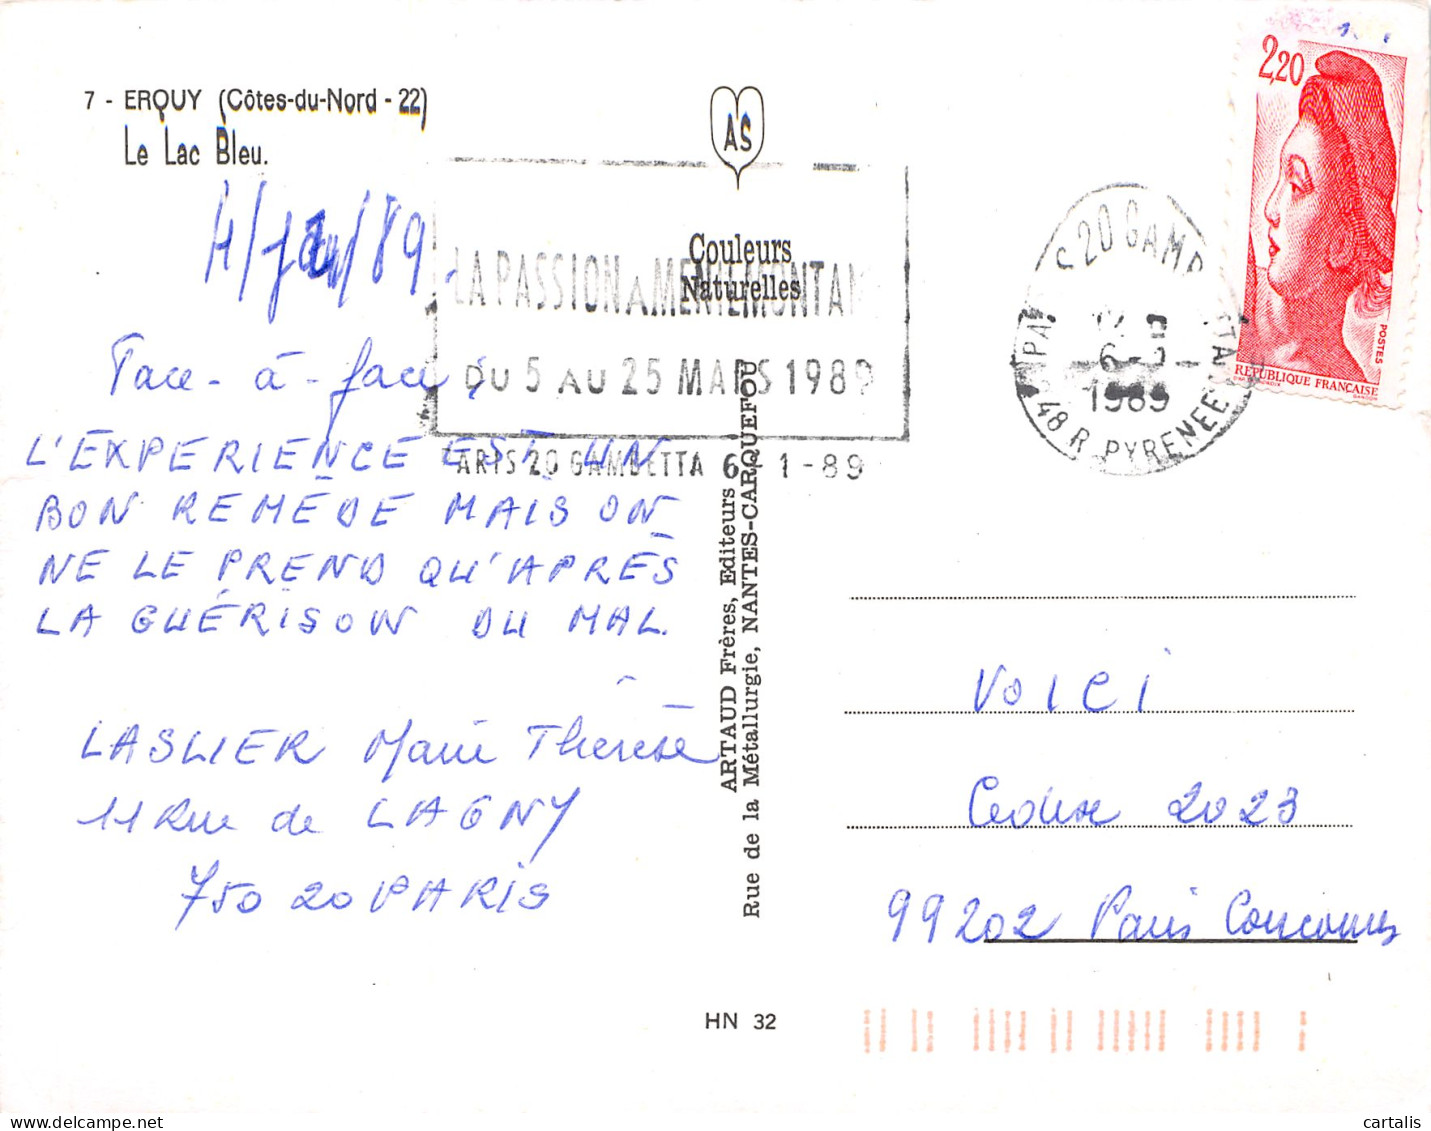 7 - ERQUY (Côtes-du-Nord - 22)
Le Lac Bleu.
4/jan/89.
Face-à-face,
L'EXPERIENCE EST UN
BON REMÈDE MAIS ON
NE LE PREND QU'APRÈS
LA GUÉRISON DU MAL.
LASLIER Marie Thérèse
11 Rue de LAGNY
75020 PARIS
AS
Couleurs
Naturelles
LA PASSION A MENILMONTAN
DU 5 AU 25 MARS 1989
PARIS 20 GAMBETTA 6 1-89
ARTAUD Frères, Editeurs
Rue de la Métallurgie, NANTES-CARQUEFOU
HN 32
20 GAMB
1989
48 R. PYRENEE
2,20
POSTES
REPUBLIQUE FRANCAISE
VOICI
Cedex 2023
99202 Paris Concours
cartalis